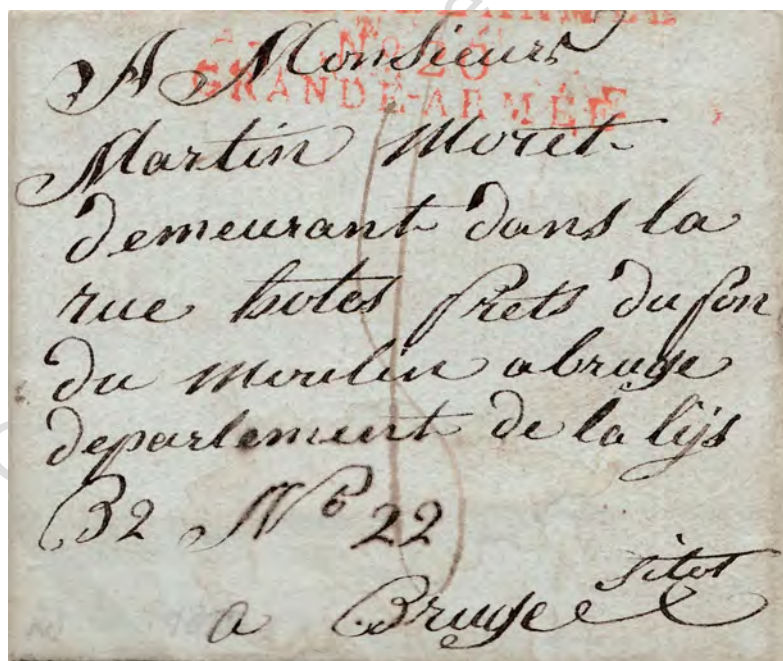 No 26
GRANDE-ARMÉE
A Monsieur
Martin Moret
demeurant dans la
rue hotes prets du pon
du moulin a bruge
departement de la lijs
B2 No 22
sitot
a Bruge